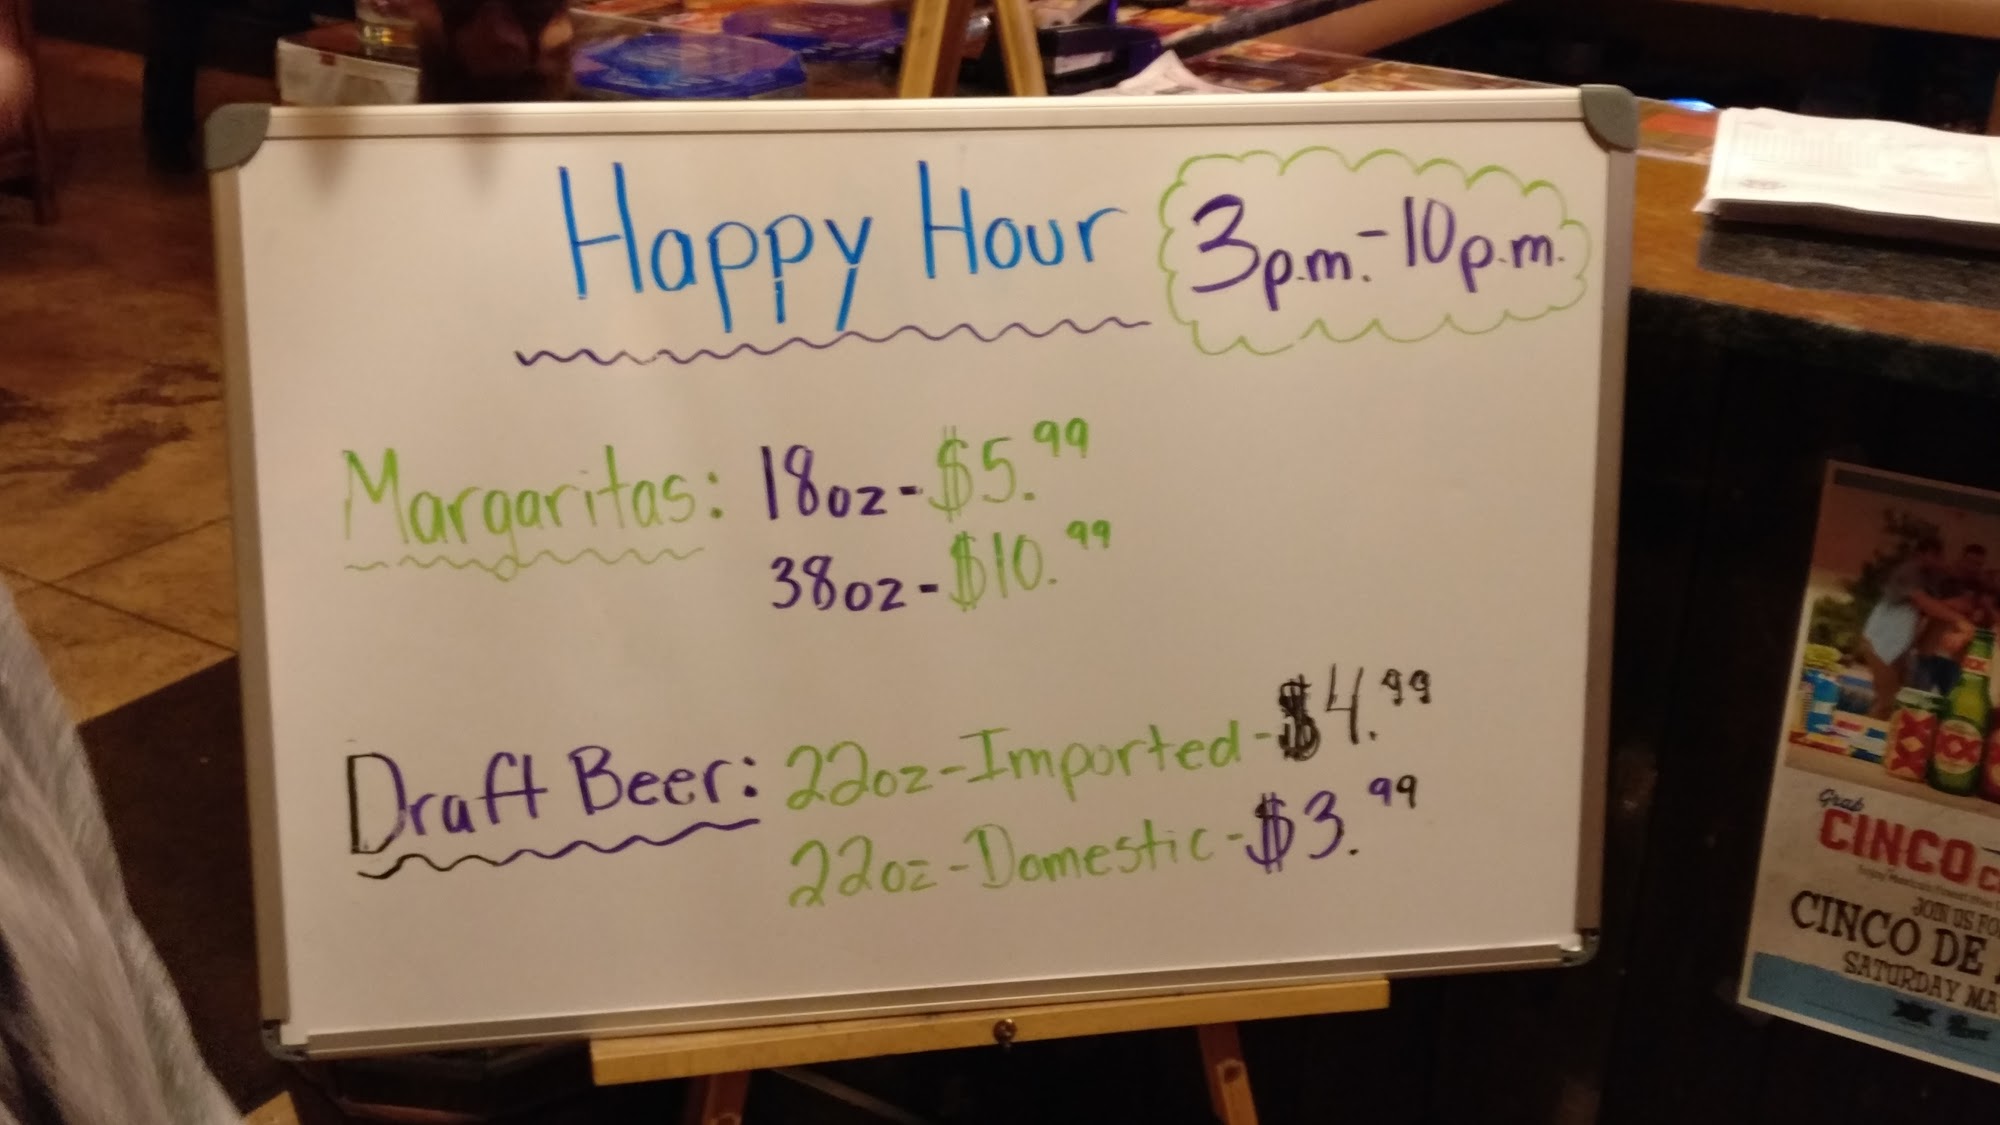 Happy Hour 3p.m.-10p.m.
Margaritas: 18oz-$5.99
38oz-$10.99
Draft Beer: 22oz-Imported-$4.99
22oz-Domestic-$3.99
Grab
CINCO
JOIN US
CINCO DE
SATURDAY